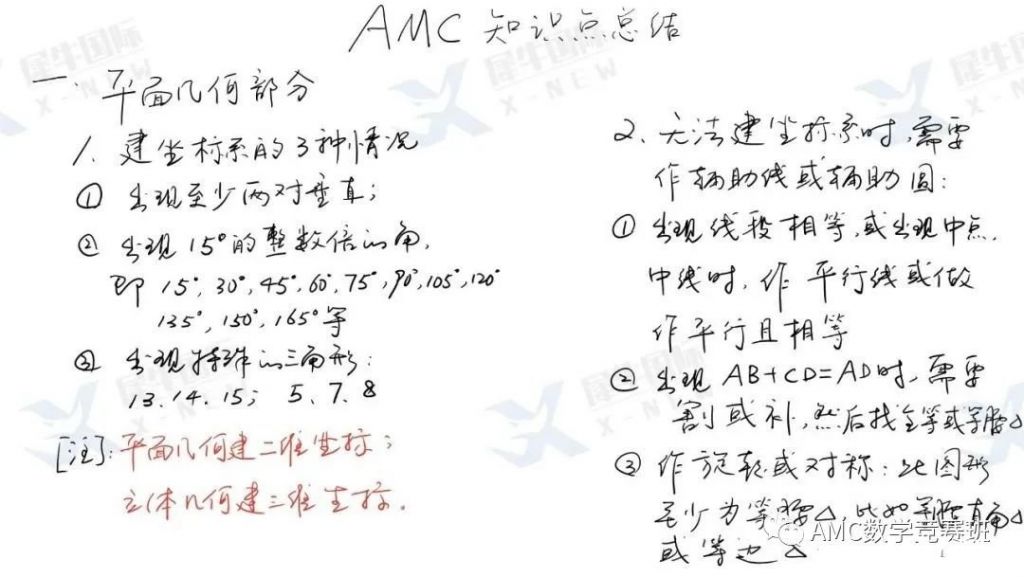 AMC 知识点总结
一. 平面几何部分
1. 建坐标系的3种情况
① 出现至少两对垂直;
② 出现15°的整数倍的角,
即 15°, 30°, 45°, 60°, 75°, 90°, 105°, 120°
135°, 150°, 165°等
③ 出现特殊的三角形:
13. 14. 15; 5. 7. 8
[注]: 平面几何建二维坐标;
立体几何建三维坐标.
2. 无法建坐标系时, 需要
作辅助线或辅助圆:
① 出现线段相等, 或出现中点.
中线时, 作平行线或做
作平行且相等
② 出现 AB+CD=AD时, 需要
割或补, 然后找全等或等腰△
③ 作旋转或对称: 此图形
至少为等腰△, 比如等腰直角△
或等边△
AMC数学竞赛班
犀牛国际
X-NEW